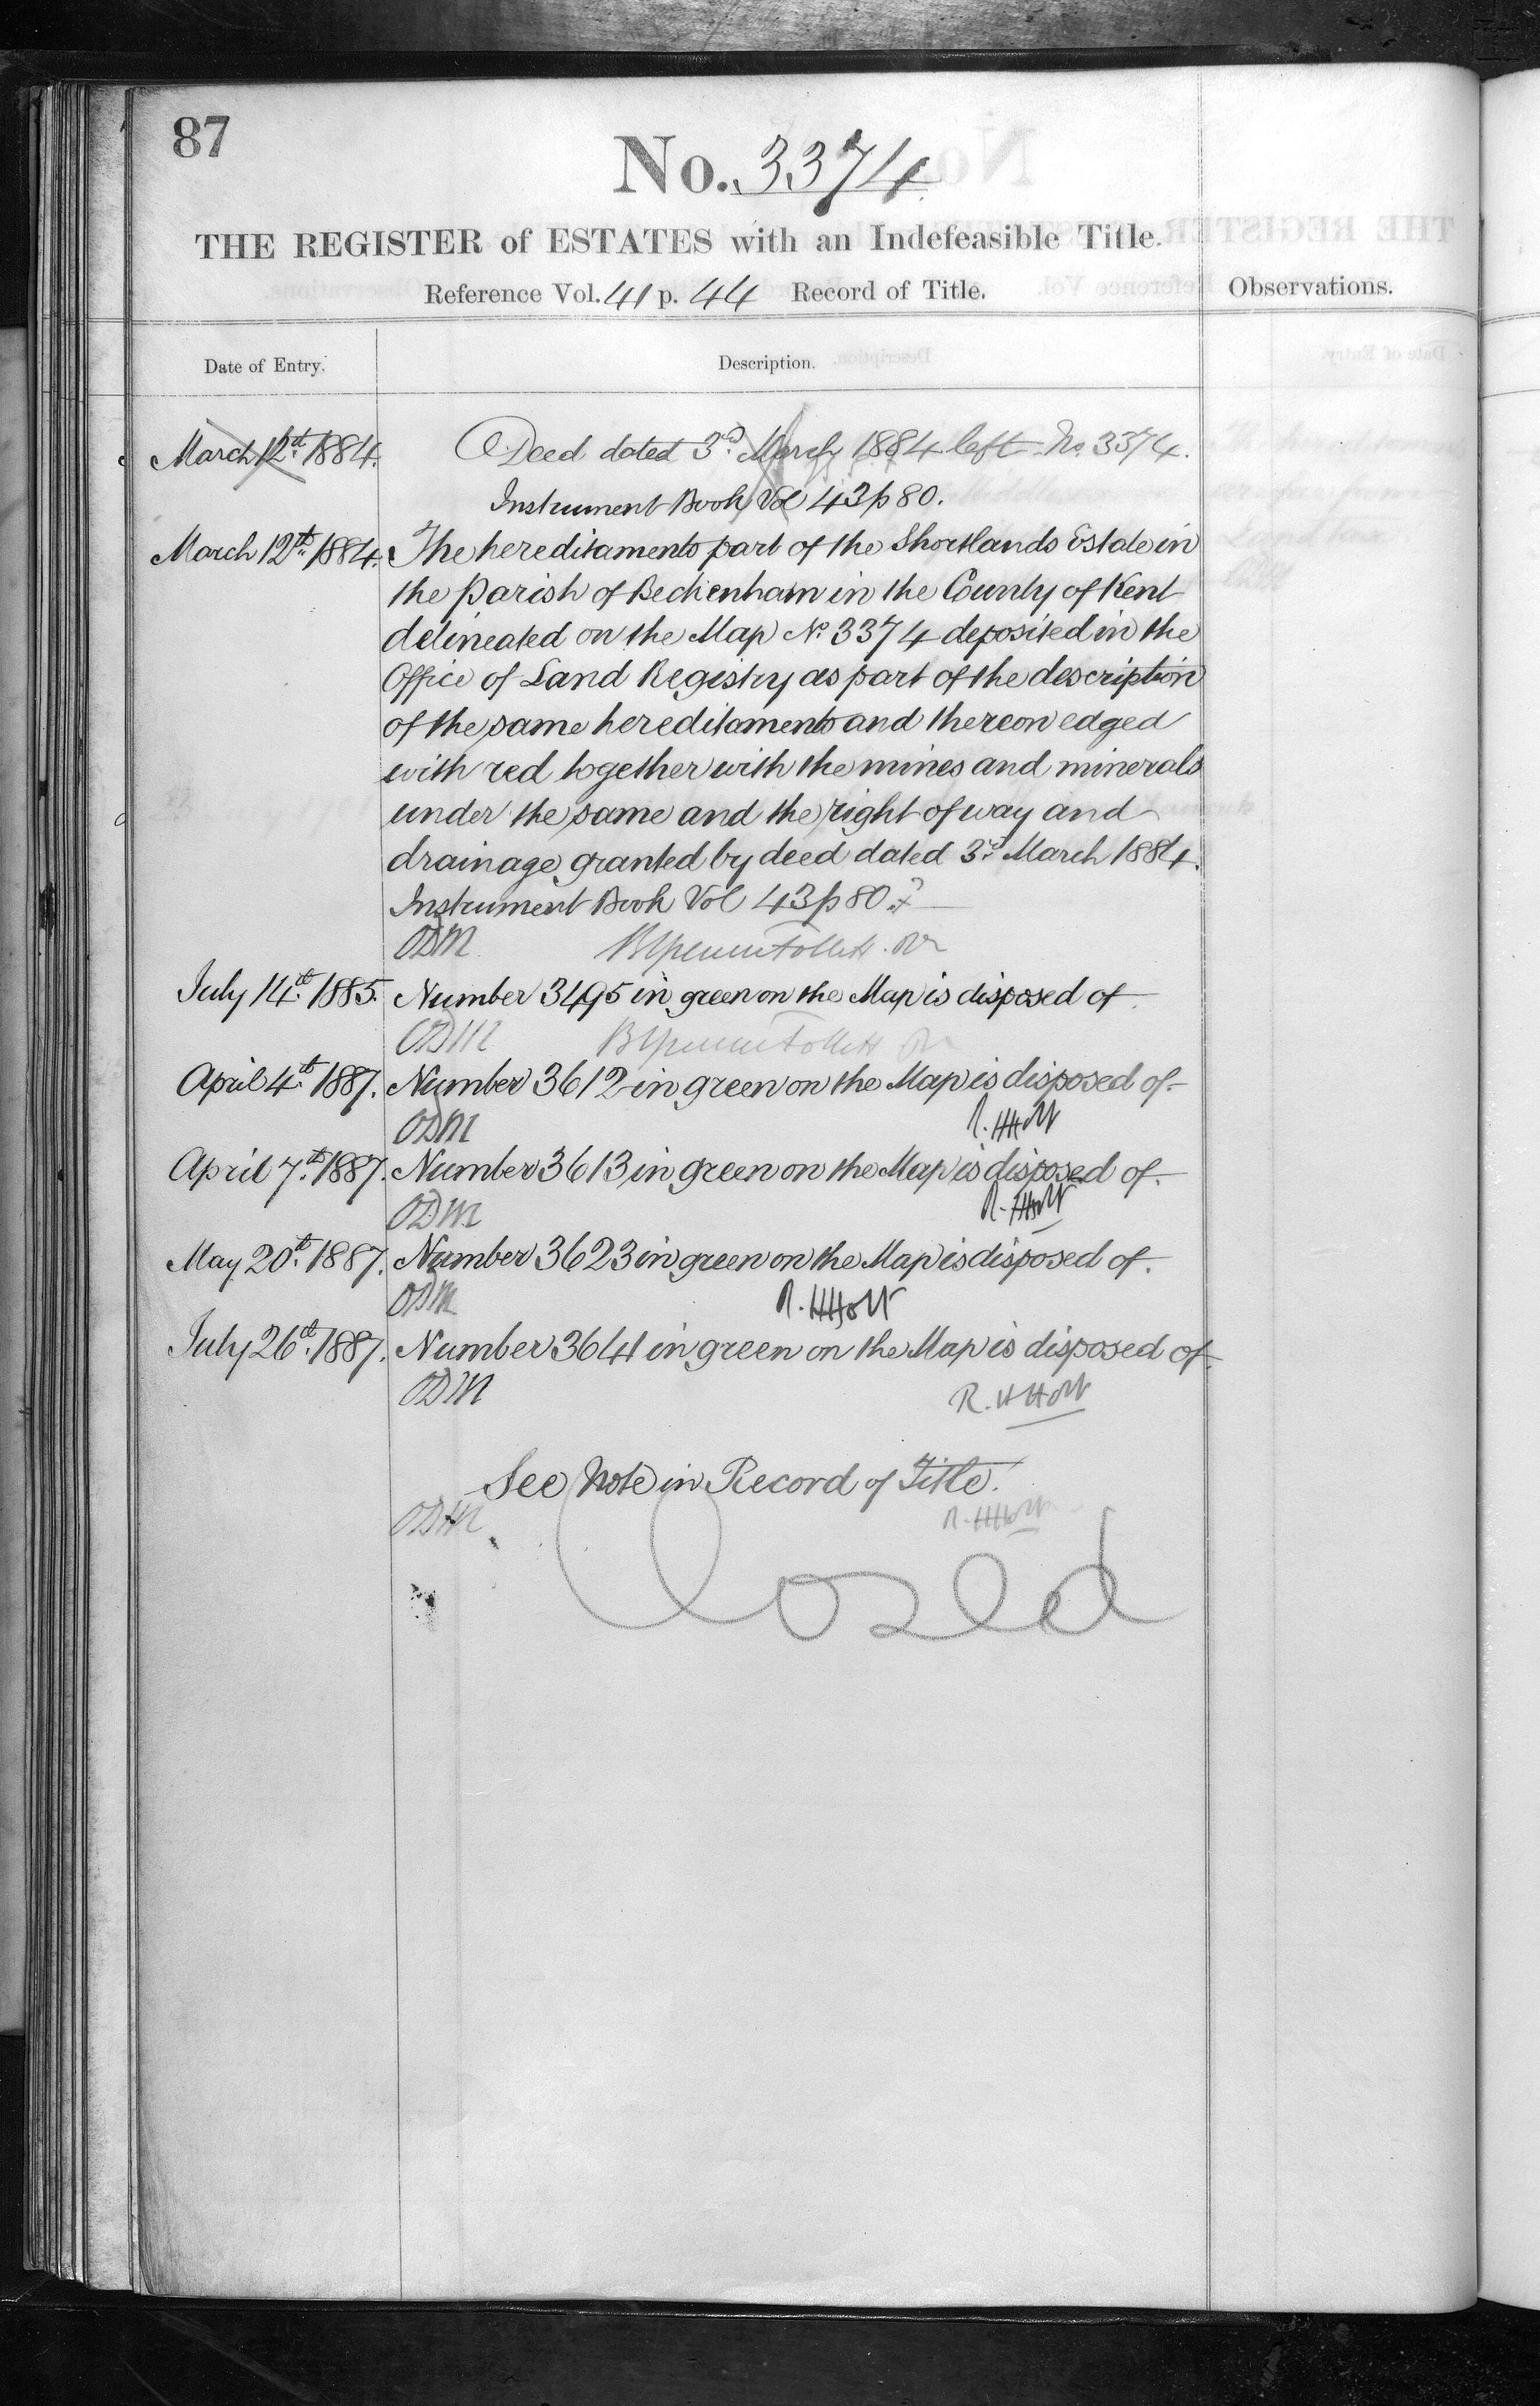 87
No. 3374
THE REGISTER of ESTATES with an Indefeasible Title.
Reference Vol. 41 p. 44 Record of Title.
Observations.
Date of Entry.
Description.
March 12th 1884. Deed dated 3rd March 1884 left No. 3374.
Instrument Book Vol 43 p 80.
March 12th 1884. The hereditaments part of the Shortlands Estate in
the Parish of Beckenham in the County of Kent
delineated on the Map No 3374 deposited in the
Office of Land Registry as part of the description
of the same hereditaments and thereon edged
with red together with the mines and minerals
under the same and the right of way and
drainage granted by deed dated 3rd March 1884.
Instrument Book Vol 43 p 80.
ODM
July 14th 1885. Number 3495 in green on the Map is disposed of.
ODM
April 4th 1887. Number 3612 in green on the Map is disposed of.
ODM R. H Holt
April 7th 1887. Number 3613 in green on the Map is disposed of.
ODM R. H Holt
May 20th 1887. Number 3623 in green on the Map is disposed of.
ODM R. H Holt
July 26th 1887. Number 3641 in green on the Map is disposed of.
ODM R. H Holt
See Note in Record of Title.
ODM R. H Holt
Closed